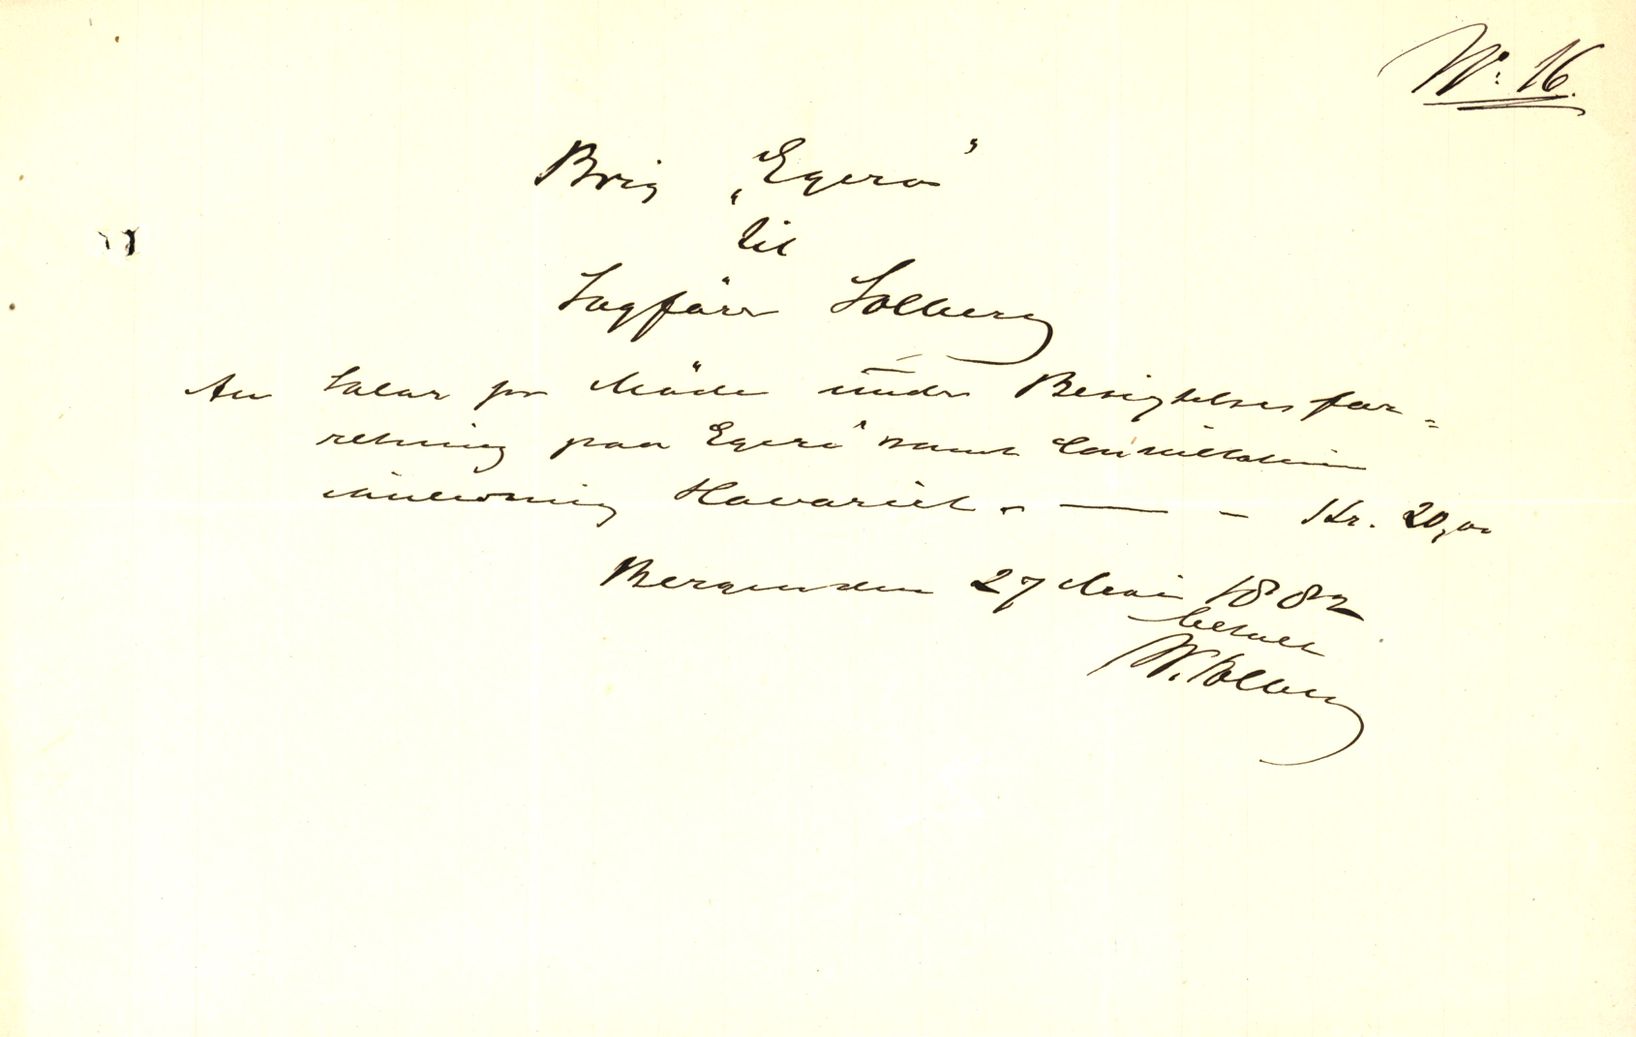 No: 16.
Brig "Egerö"
til
Sagförer Solberg
An Salær for Möde under Besigtelsesfor=
retning paa "Egerö" samt Consultation
Havariet. — - Kr. 20,00
Bergen den 27 Mai 1882
betalt
W. Solberg